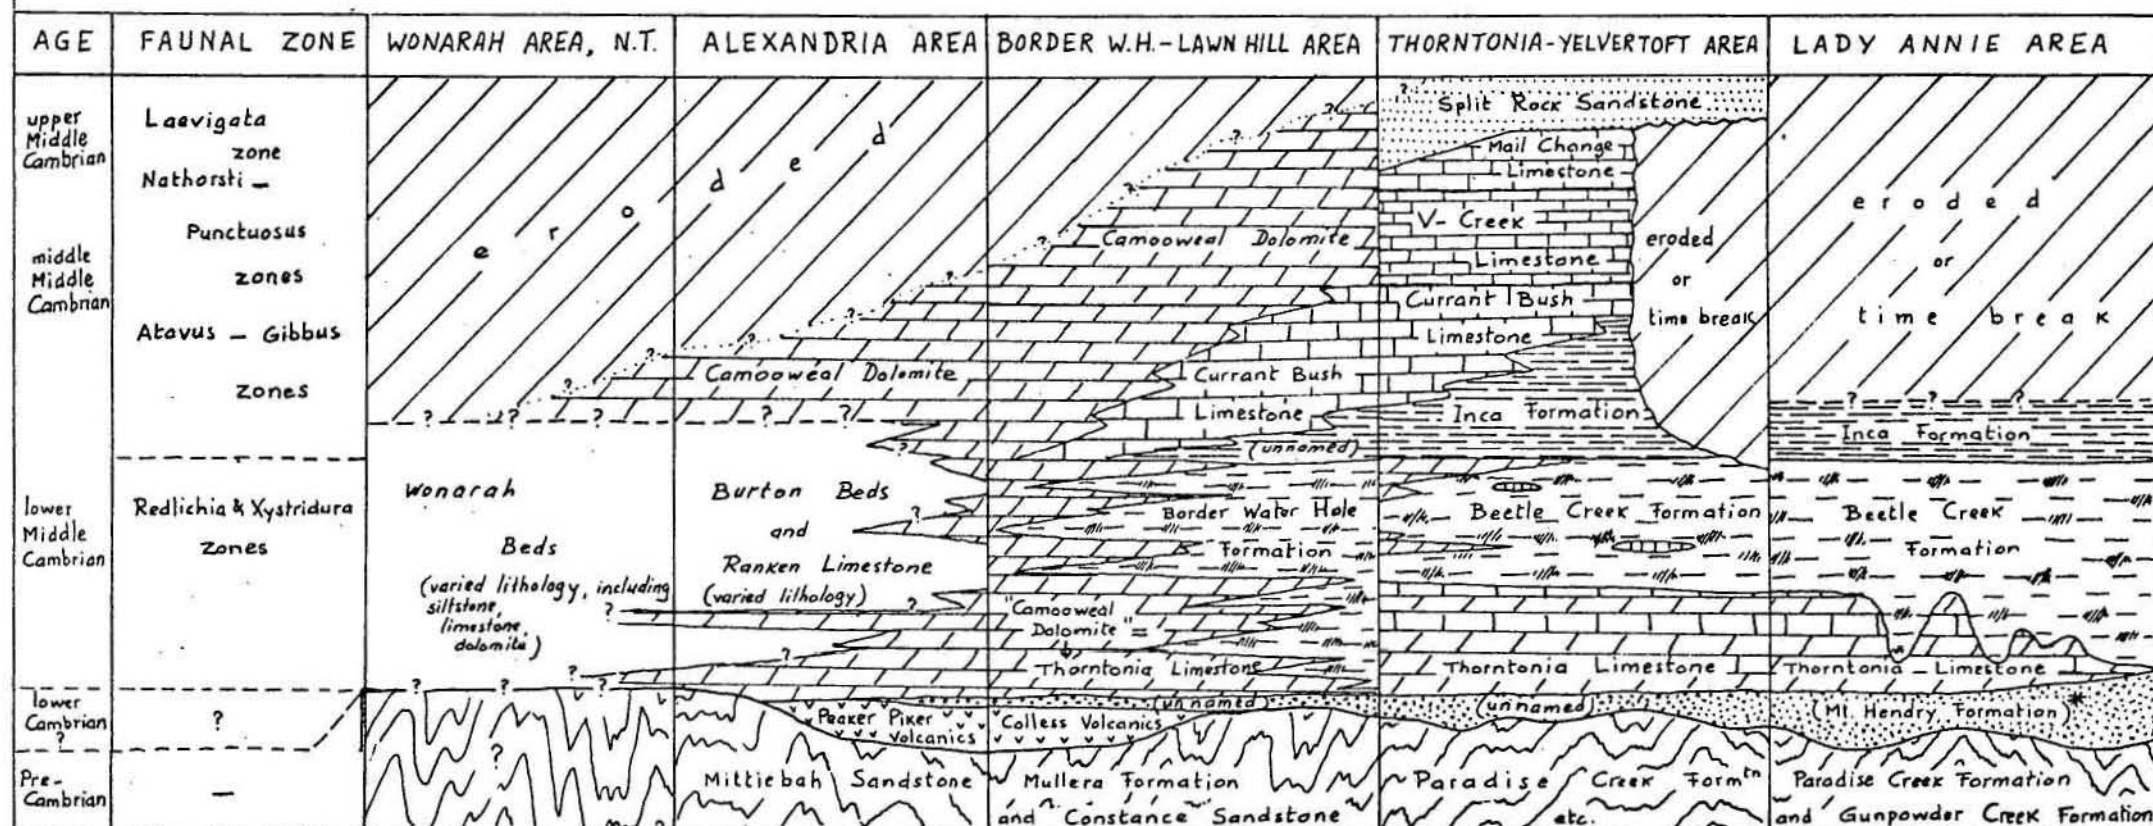 AGE
FAUNAL ZONE
WONARAH AREA, N.T.
ALEXANDRIA AREA
BORDER W.H.-LAWN HILL AREA
THORNTONIA-YELVERTOFT AREA
LADY ANNIE AREA
upper
Middle
Cambrian
middle
Middle
Cambrian
lower
Middle
Cambrian
lower
Cambrian
?
Pre-
Cambrian
Laevigata
zone
Nathorsti –
Punctuosus
zones
Atavus – Gibbus
zones
Redlichia & Xystridura
zones
?
–
eroded
Camooweal Dolomite
Wonarah
Beds
(varied lithology, including
siltstone,
limestone,
dolomite)
Burton Beds
and
Ranken Limestone
(varied lithology)
Peaker Piker
Volcanics
Mittiebah Sandstone
Camooweal Dolomite
Currant Bush
Limestone
(unnamed)
Border Water Hole
Formation
"Camooweal
Dolomite" =
Thorntonia Limestone
(unnamed)
Colless Volcanics
Mullera Formation
and Constance Sandstone
Split Rock Sandstone
Mail Change
Limestone
V-Creek
Limestone
Currant Bush
Limestone
Inca Formation
eroded
or
time break
Beetle Creek Formation
Thorntonia Limestone
(unnamed)
Paradise Creek Formtn
etc.
eroded
or
time break
Inca Formation
Beetle Creek
Formation
Thorntonia – Limestone
(Mt. Hendry Formation)*
Paradise Creek Formation
and Gunpowder Creek Formation